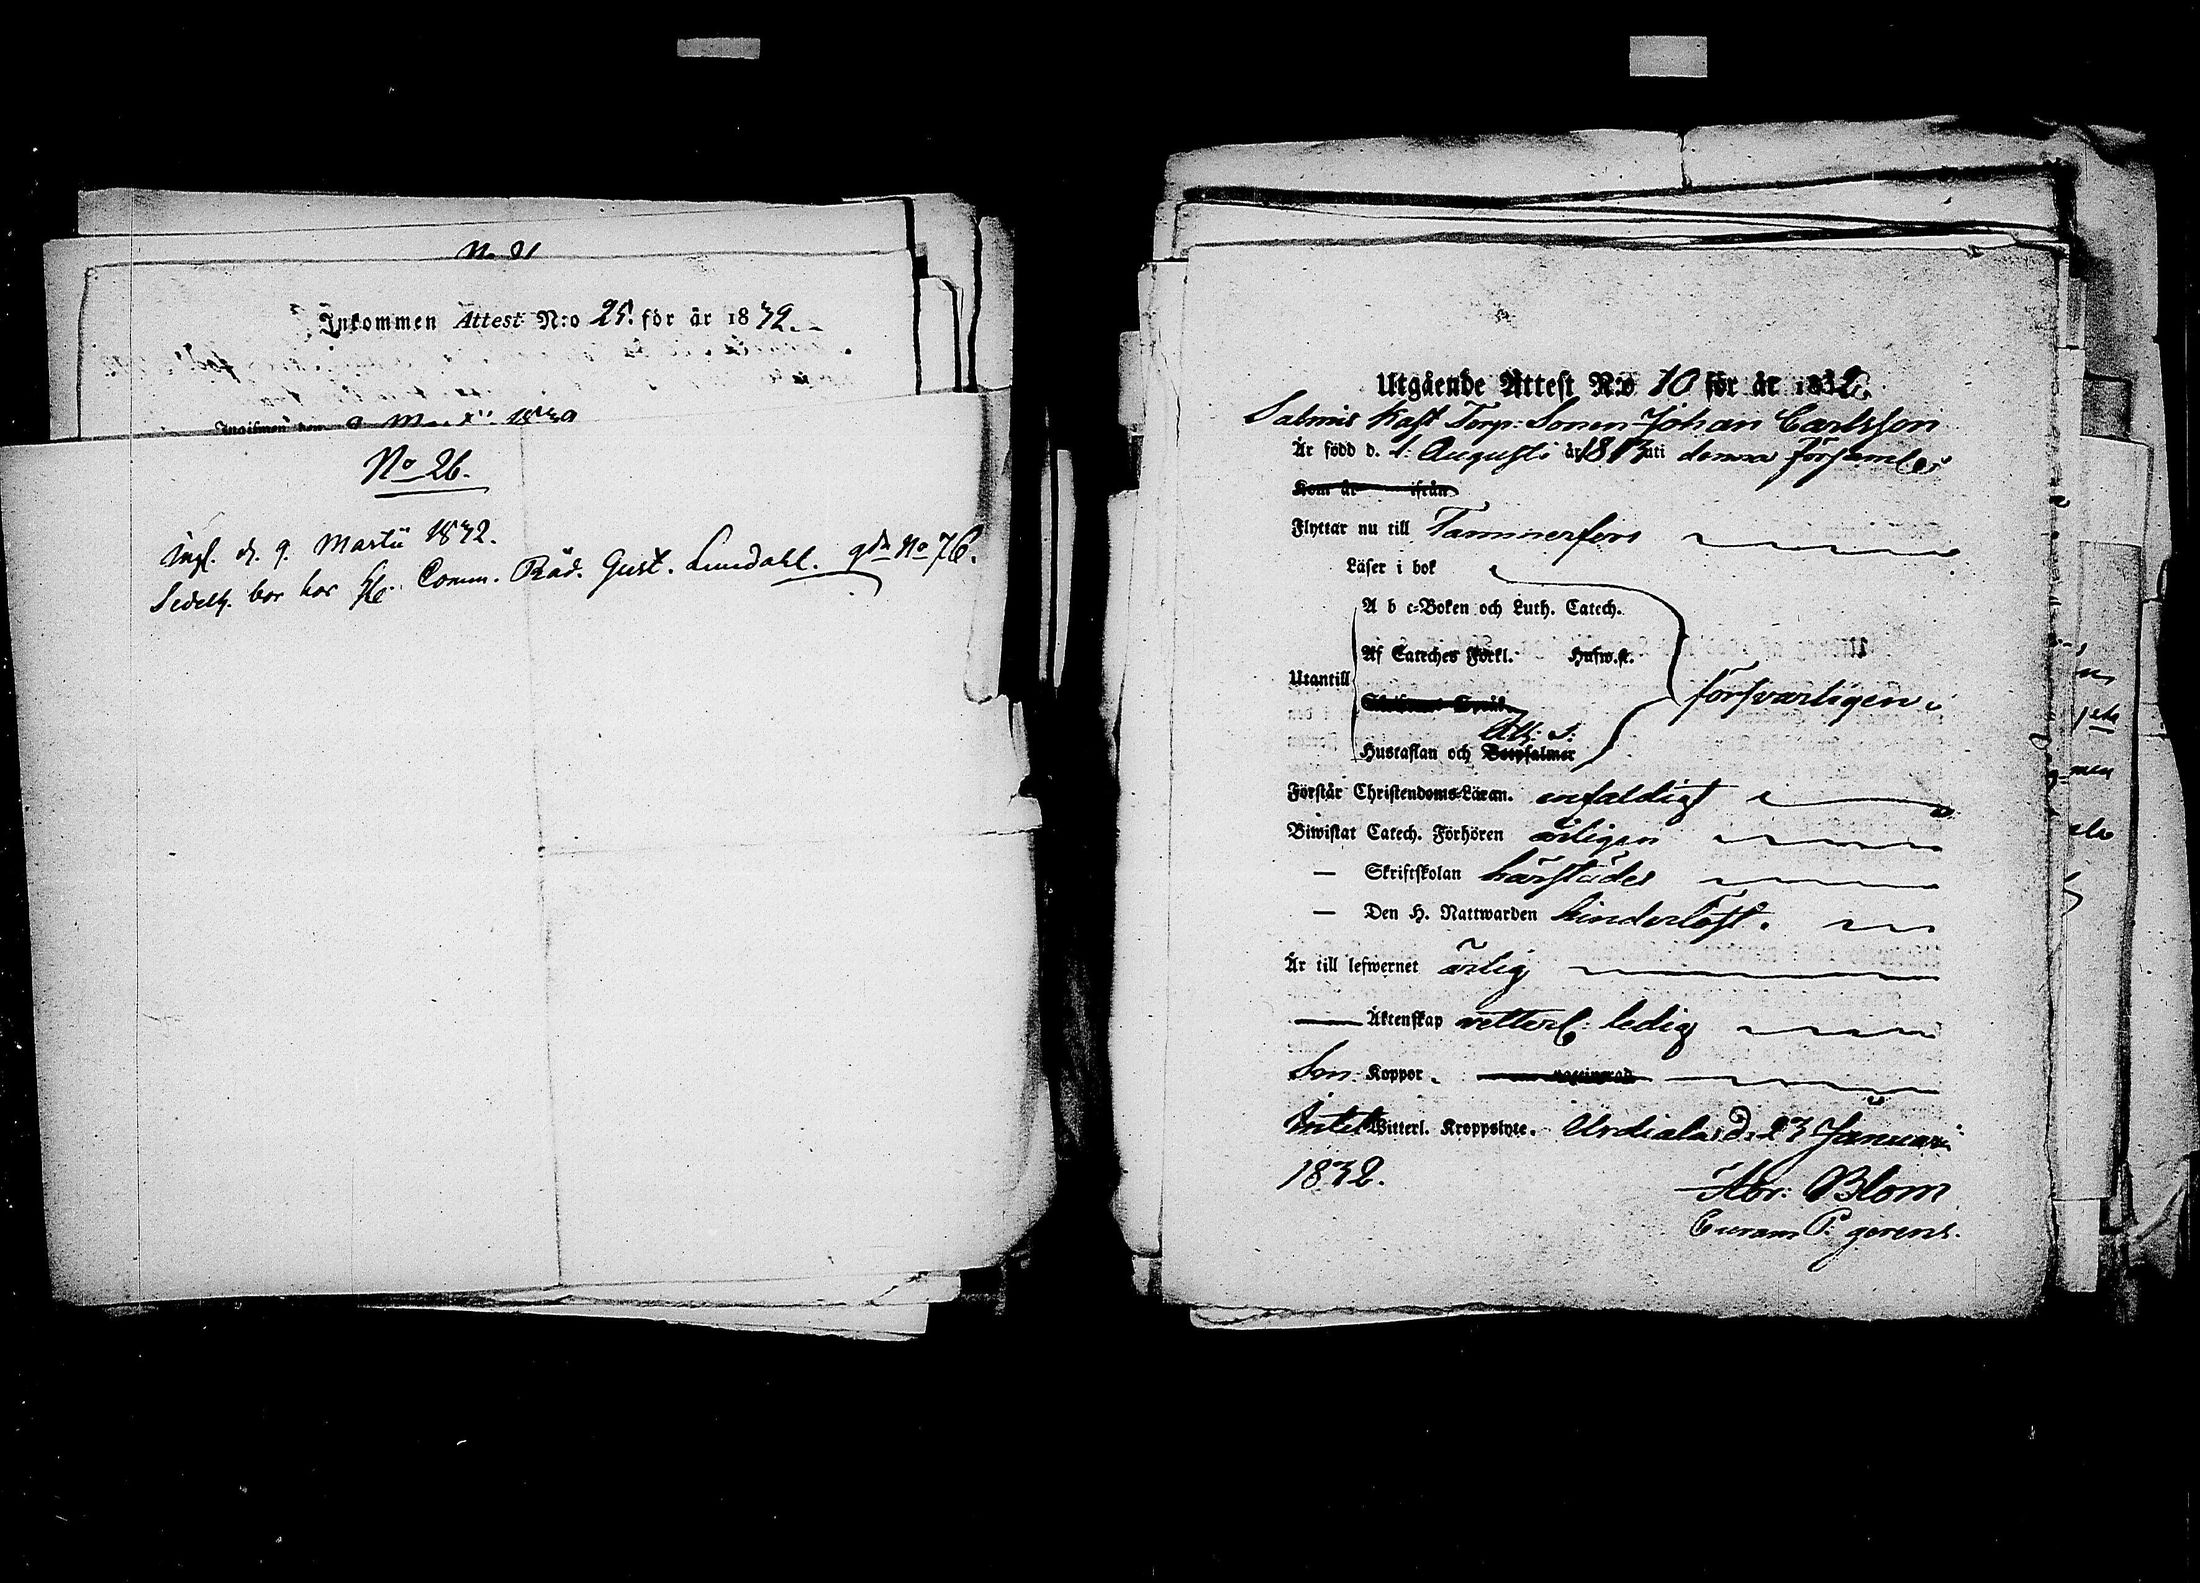 No 21
Inkommen Attest N:o 25. för år 1832.
Ingifwen den 9 Martii 1832
No 26.
Ingl. d. 9. Martii 1832.
Sedelh. bor hos H. Comm. Råd. Gust. Lundahl. gdn No 76.
Utgående Attest N:o 10 för år 1832.
Salmis Torp: Sonen Johan Carlsson
Är född d. 1. Augusti år 1813 uti denna Församl.
Kom år ifrån
Flyttar nu till Tammerfors
Läser i bok
A b c-Boken och Luth. Catech.
Af Cateches Förkl. Husw.st.
Utantill
försvarligen
Ath: S:
Hustaflan och Botpsalmer
Förstår Christendoms-Läran. enfaldigt
Biwistat Catech. Förhören årligen
— Skriftskolan härstädes
— Den H. Nattwarden hinderlöst.
Är till lefwernet ärlig
Äktenskap vetterl: ledig
Koppor.
Intet Witterl. Kroppslyte. Urdiala d. 23 Januari
1832.
Abr: Blom
Curam P. gerens.